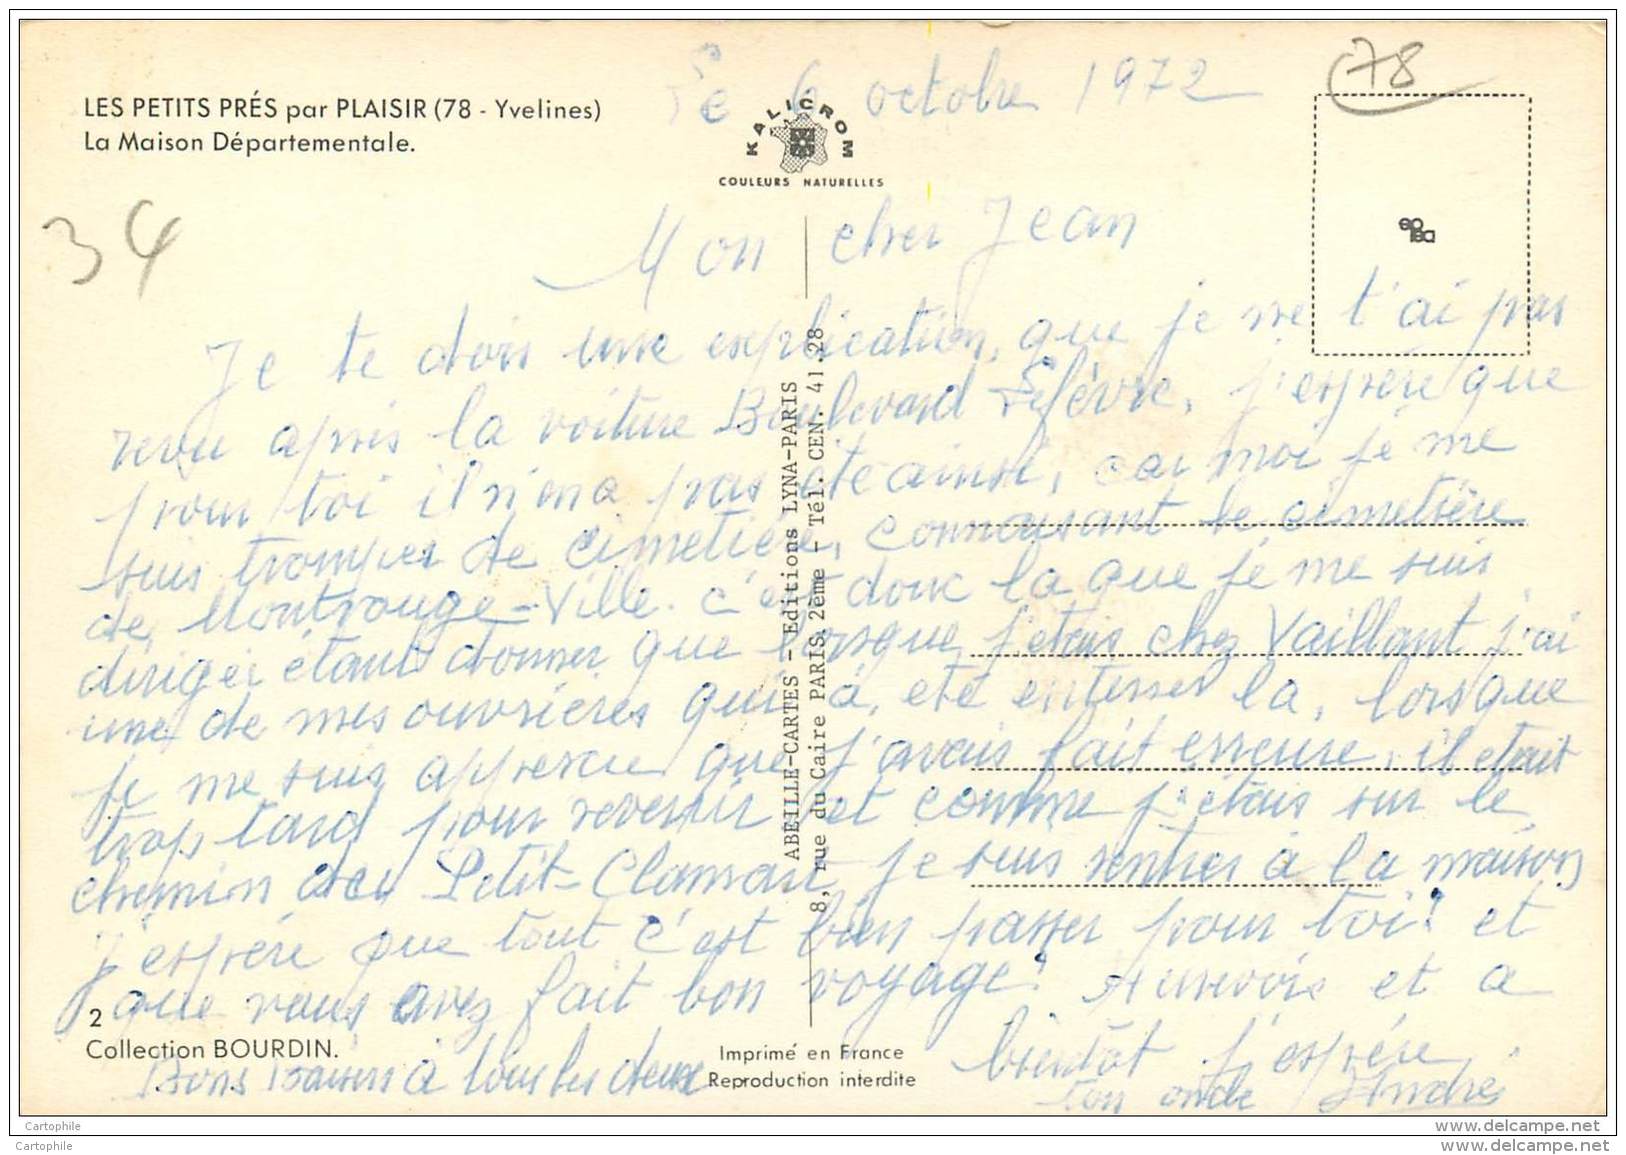 LES PETITS PRÉS par PLAISIR (78 - Yvelines)
La Maison Départementale.
Le 6 octobre 1972
78
KALICROM
COULEURS NATURELLES
34
Mon cher Jean
Je te dois une explication, que je ne t'ai pas
revu après la voiture Boulevard Lefévre, j'espère que
pour toi il n'en a pas été ainsi, car moi je me
suis tromper de cimetière, connaissant le cimetière
de Montrouge-Ville. c'est donc la que je me suis
diriger étant donner que lorsque j'etais chez Vaillant j'ai
une de mes ouvrières qui à, eté enterrer la, lorsque
je me suis apperscu que j'avais fait erreure, il etait
trop tard pour revenir et comme j'étais sur le
chemin de Petit-Clamart je suis rentrer à la maison
J'espère que tout c'est bien passer pour toi! et
que vous avez fait bon voyage! Aurevoire et a
bientôt j'espère
Bons Baisers à tous les deux
ton oncle André
ABEILLE-CARTES - Editions LYNA-PARIS
8, rue du Caire PARIS 2ème - Tél. CEN. 41.28
2
Collection BOURDIN.
Imprimé en France
Reproduction interdite
Cartophile
www.delcampe.net
Cartophile
www.delcampe.net